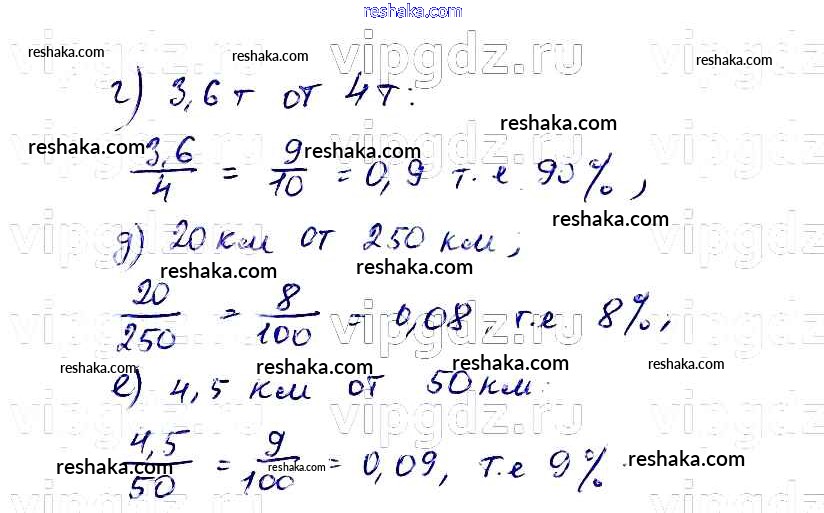 reshaka.com
vipgdz.ru vipgdz.ru
reshaka.com reshaka.com reshaka.com
г) 3,6 т от 4 т:
reshaka.com
vipgdz.ru vipgdz.ru
reshaka.com reshaka.com
3,6/4 = 9/10 = 0,9 т.е 90%,
reshaka.com
vipgdz.ru vipgdz.ru
д) 20 км от 250 км;
reshaka.com reshaka.com
20/250 = 8/100 = 0,08, т.е 8%,
vipgdz.ru vipgdz.ru
reshaka.com reshaka.com reshaka.com
е) 4,5 км от 50 км:
vipgdz.ru vipgdz.ru
4,5/50 = 9/100 = 0,09, т.е 9%.
reshaka.com reshaka.com reshaka.com